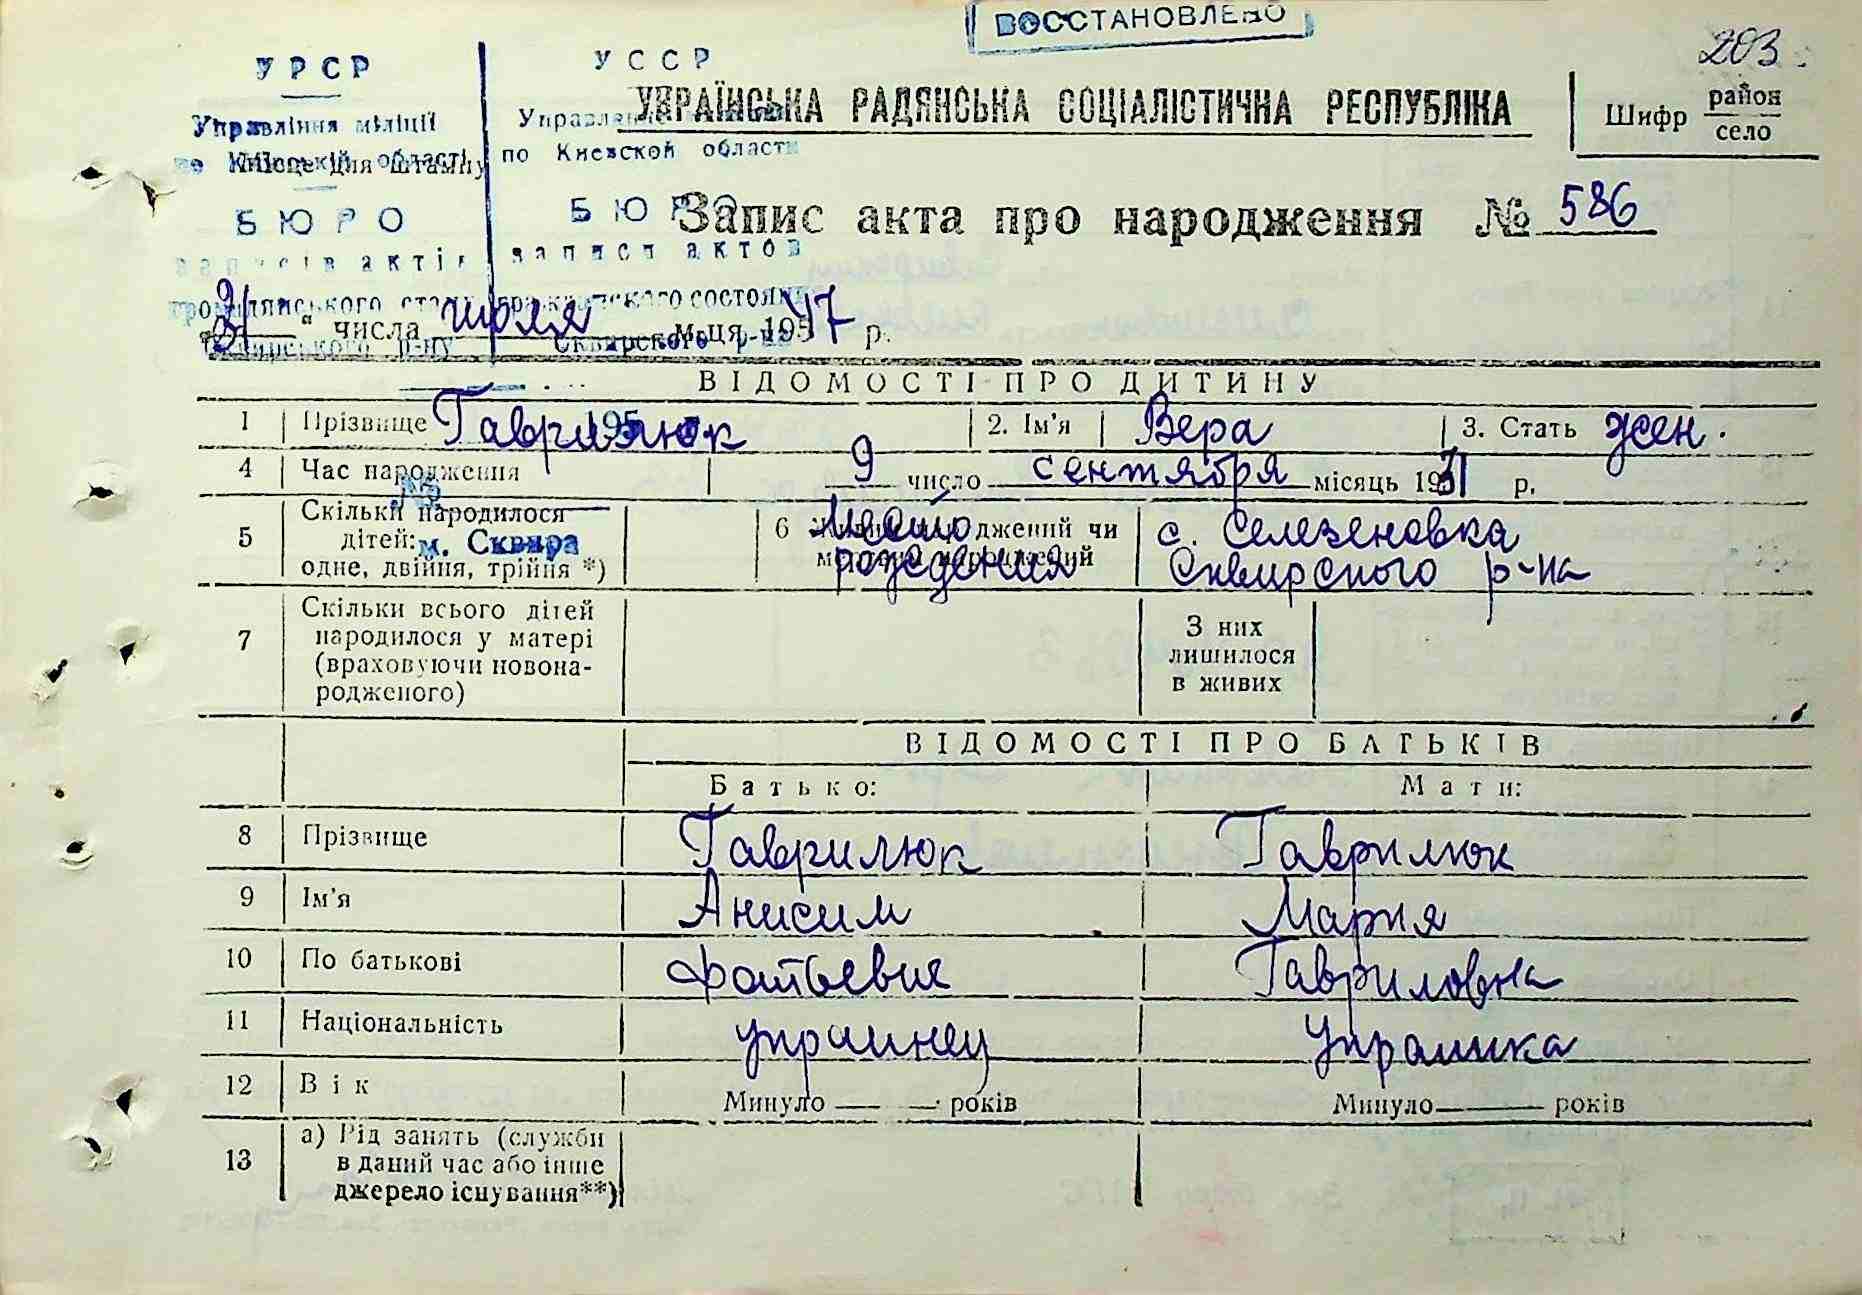 ВОССТАНОВЛЕНО
203
УРСР
УССР
УКРАЇНСЬКА РАДЯНСЬКА СОЦІАЛІСТИЧНА РЕСПУБЛІКА
Шифр район
село
Управління міліції
по Київській області
по Киевской области
Місце для штампу
БЮРО
БЮРО
Запис акта про народження № 586
записів актів
записи актов
громадянського стану
гражданского состояния
Сквирського р-ну
Сквирского р-на
числа июля м-ця 1947 р.
195
№
м. Сквира
ВІДОМОСТІ ПРО ДИТИНУ
1 Прізвище Гаврилюк 2. Ім'я Вера 3. Стать жен.
4 Час народження 9 число сентября місяць 1931 р.
5 Скільки народилося дітей: одне, двійня, трійня *)
6 Место рождения с. Селезеновка Сквирского р-на
7 Скільки всього дітей народилося у матері (враховуючи новонародженого)
З них лишилося в живих
ВІДОМОСТІ ПРО БАТЬКІВ
Батько: Мати:
8 Прізвище Гаврилюк Гаврилюк
9 Ім'я Анисим Мария
10 По батькові Фотьевич Гавриловна
11 Національність украинец украинка
12 Вік Минуло — років Минуло — років
13 а) Рід занять (служби
в даний час або інше
джерело існування**)